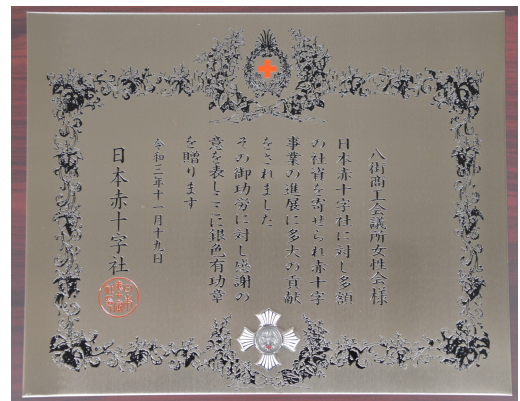 八街商工会議所女性会様
日本赤十字社に対し多額
の社資を寄せられ赤十字
事業の進展に多大の貢献
をされました
その御功労に対し感謝の
意を表しここに銀色有功章
を贈ります
令和二年十一月十九日
日本赤十字社